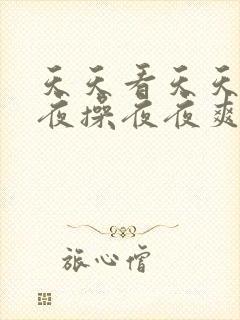 天天看天天
夜操夜夜爽
旅心僧